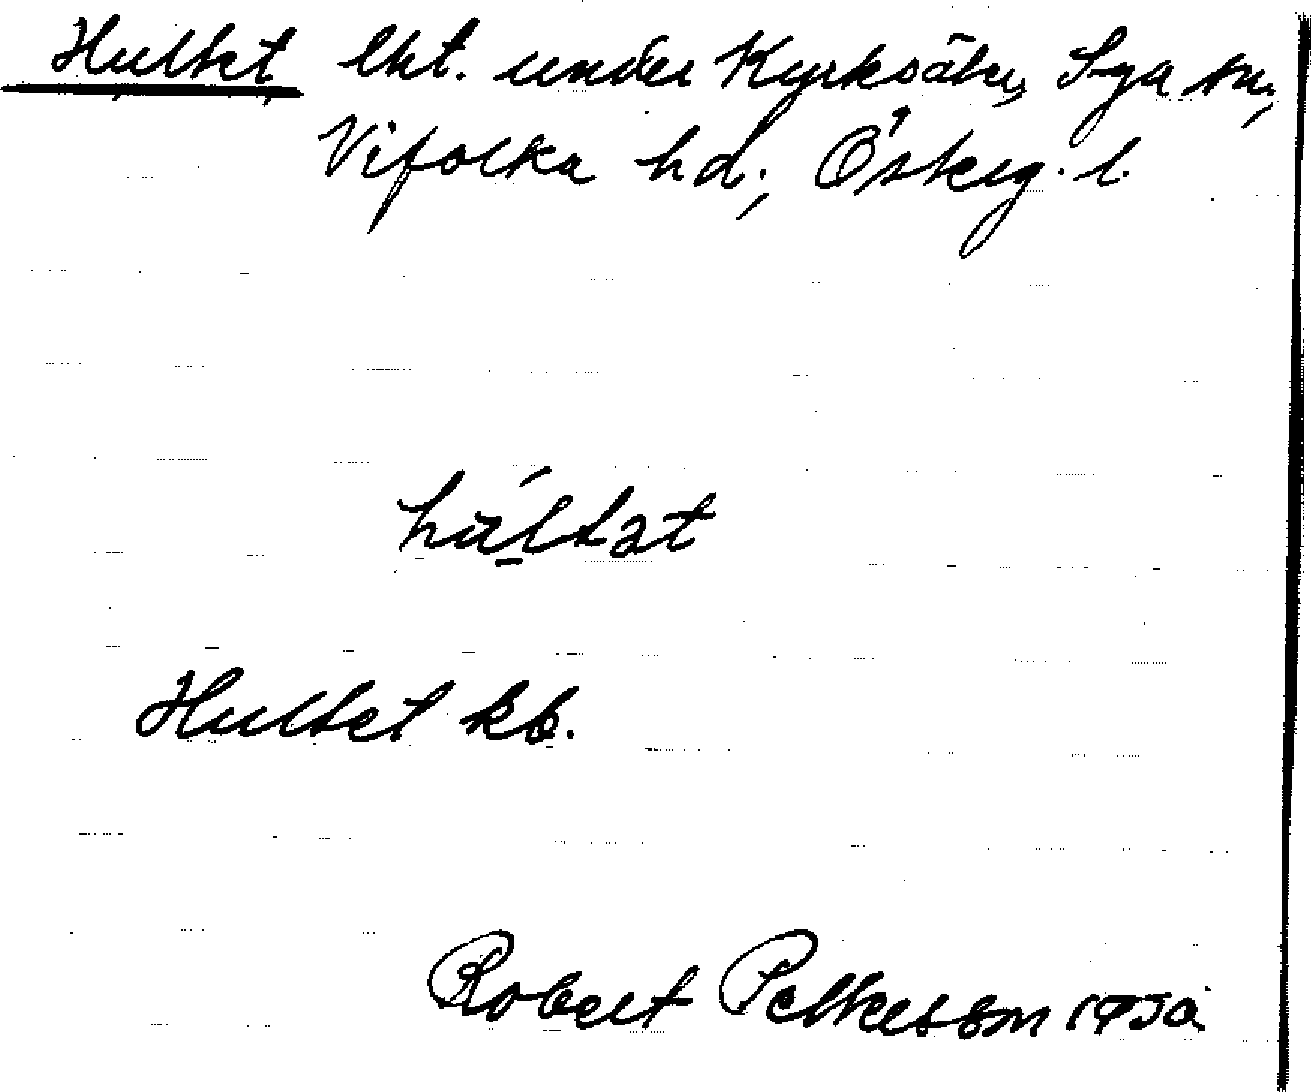 Hultet lht. under Kyrksäter, Sya sn,
Vifolka hd, Österg. l.
Hultet kb.
Robert Pettersson 1930